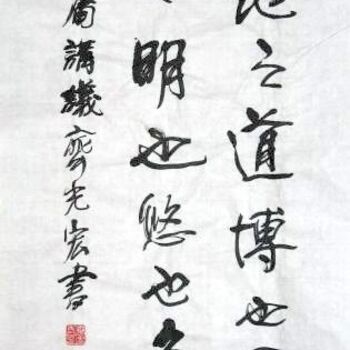 地之道博也
明也悠也久
講議齊光宏書